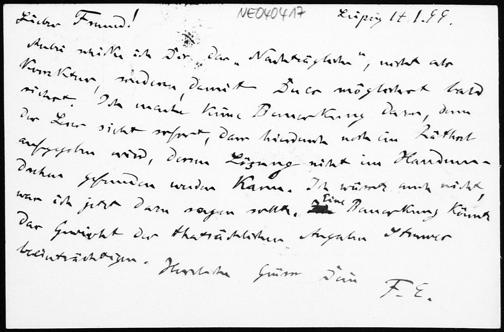 NE040417
Leipzig 14.1.99.
Lieber Freund!
schicke ich Dir das „Nachträgliche“, nicht als
Korrektur, sondern, damit Du es möglichst bald
siehst. Ich mache keine Bemerkung dazu, denn
der Leser sieht sofort, dass hierdurch noch ein Räthsel
aufgegeben wird, dessen Lösung nicht im Handum-
drehen gefunden werden kann. Ich wüsste auch nicht,
was ich jetzt dazu sagen sollte. Eine Bemerkung könnte
das Gewicht der thatsächlichen Angaben
beeinträchtigen. Herzlichen Gruss Dein
F. E.